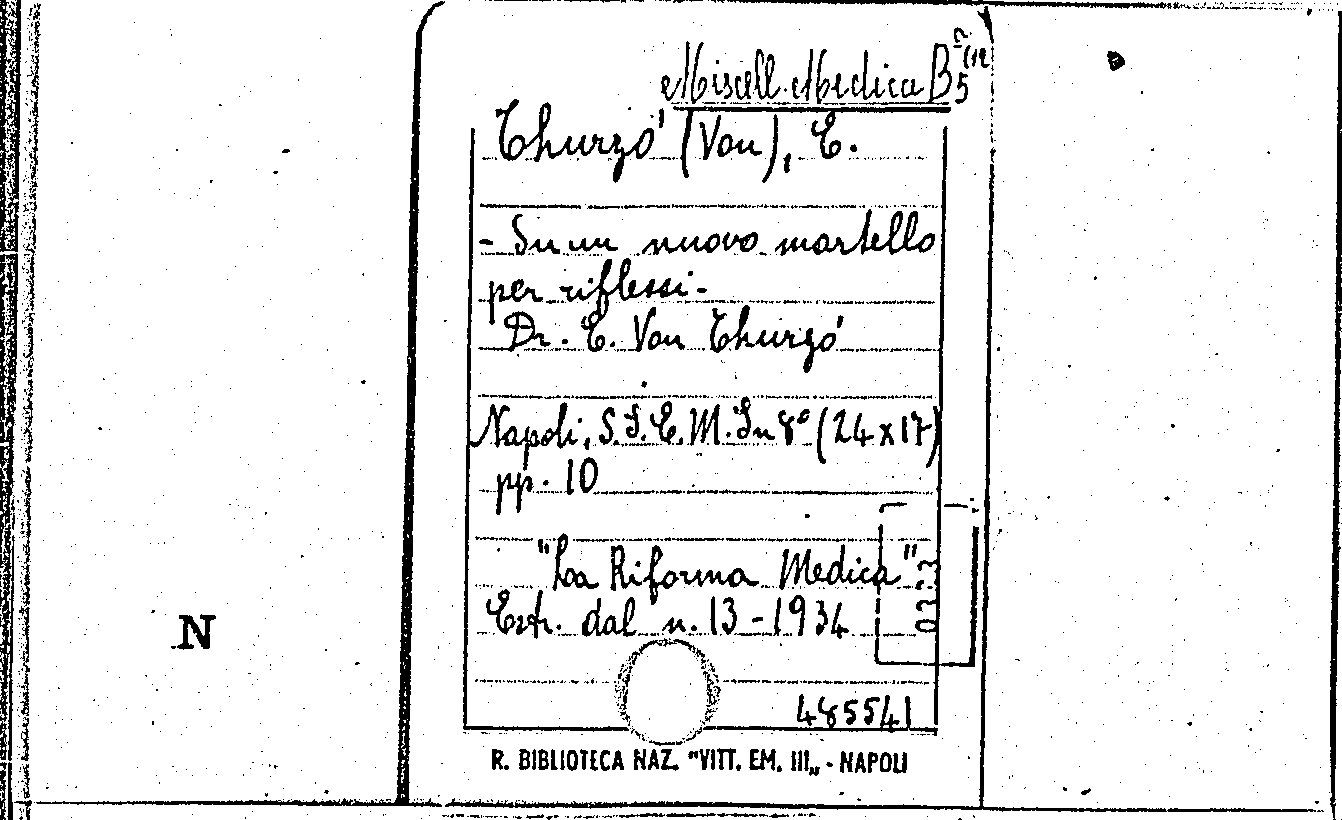 Miscell. Medica B 5
Thurzó (Von), E.
- Su un nuovo martello
per riflessi -
Dr. E. Von Thurzó
Napoli, S.I.E.M. In 8° (24x17)
pp. 10
"La Riforma Medica"
Estr. dal n. 13 - 1934
N
485541
R. BIBLIOTECA NAZ. "VITT. EM. III„ - NAPOLI